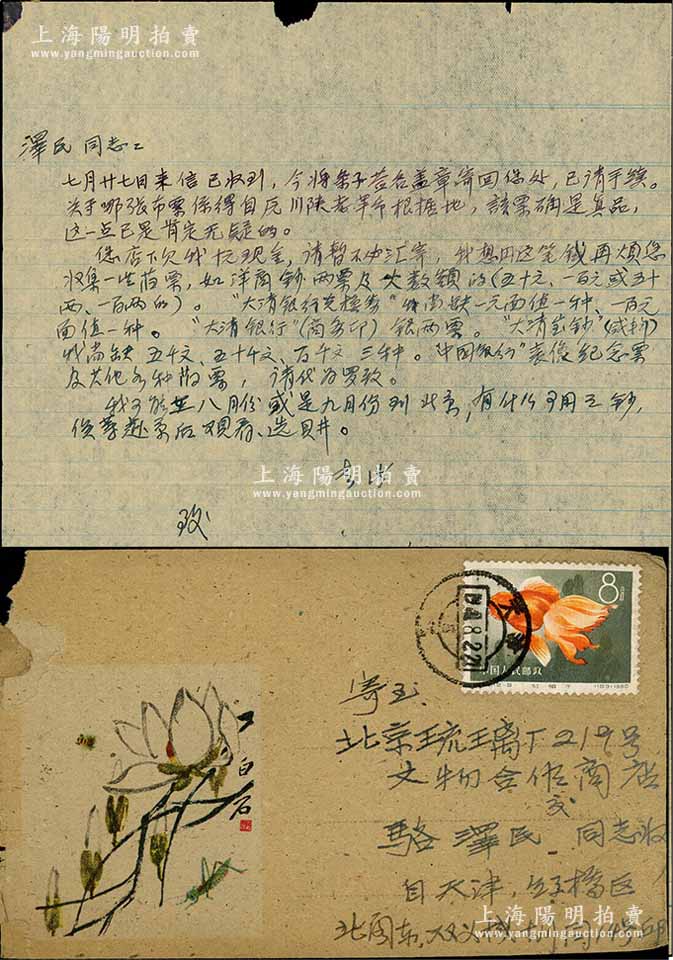 上海陽明拍賣
www.yangmingauction.com
澤民同志：
七月廿七日来信已收到，今将条子签名盖章寄回您处，已清手续。
关于哪张布票係得自反川陕老革命根据地，該票确是真品，
这一点已是肯定无疑的。
您店下欠我 现金，请暂不必汇寄，我想用这笔钱再煩您
收集一些旧票，如洋商鈔两票及大数額的（五十元、一百元或五十
两、一百两的）。“大清银行兑换券”我尚缺一元面值一种、一百元
面值一种。“大清銀行”（商务印）银两票。“大清宝鈔”（咸丰）
我尚缺 五千文、五十千文、百千文 三种。“中国银行”袁像纪念票
及其他各种旧票，请代为罗致。
我可能在八月份或是九月份到北京，有什么可用之鈔，
俟等赴京后观看、选
上海陽明拍賣
www.yangmingauction.com
致
8
中国人民邮政
白石
寄至
北京琉璃厂219号
文物合作商店
交
駱澤民 同志收
自天津，红橋区
上海陽明拍賣
www.yangmingauction.com